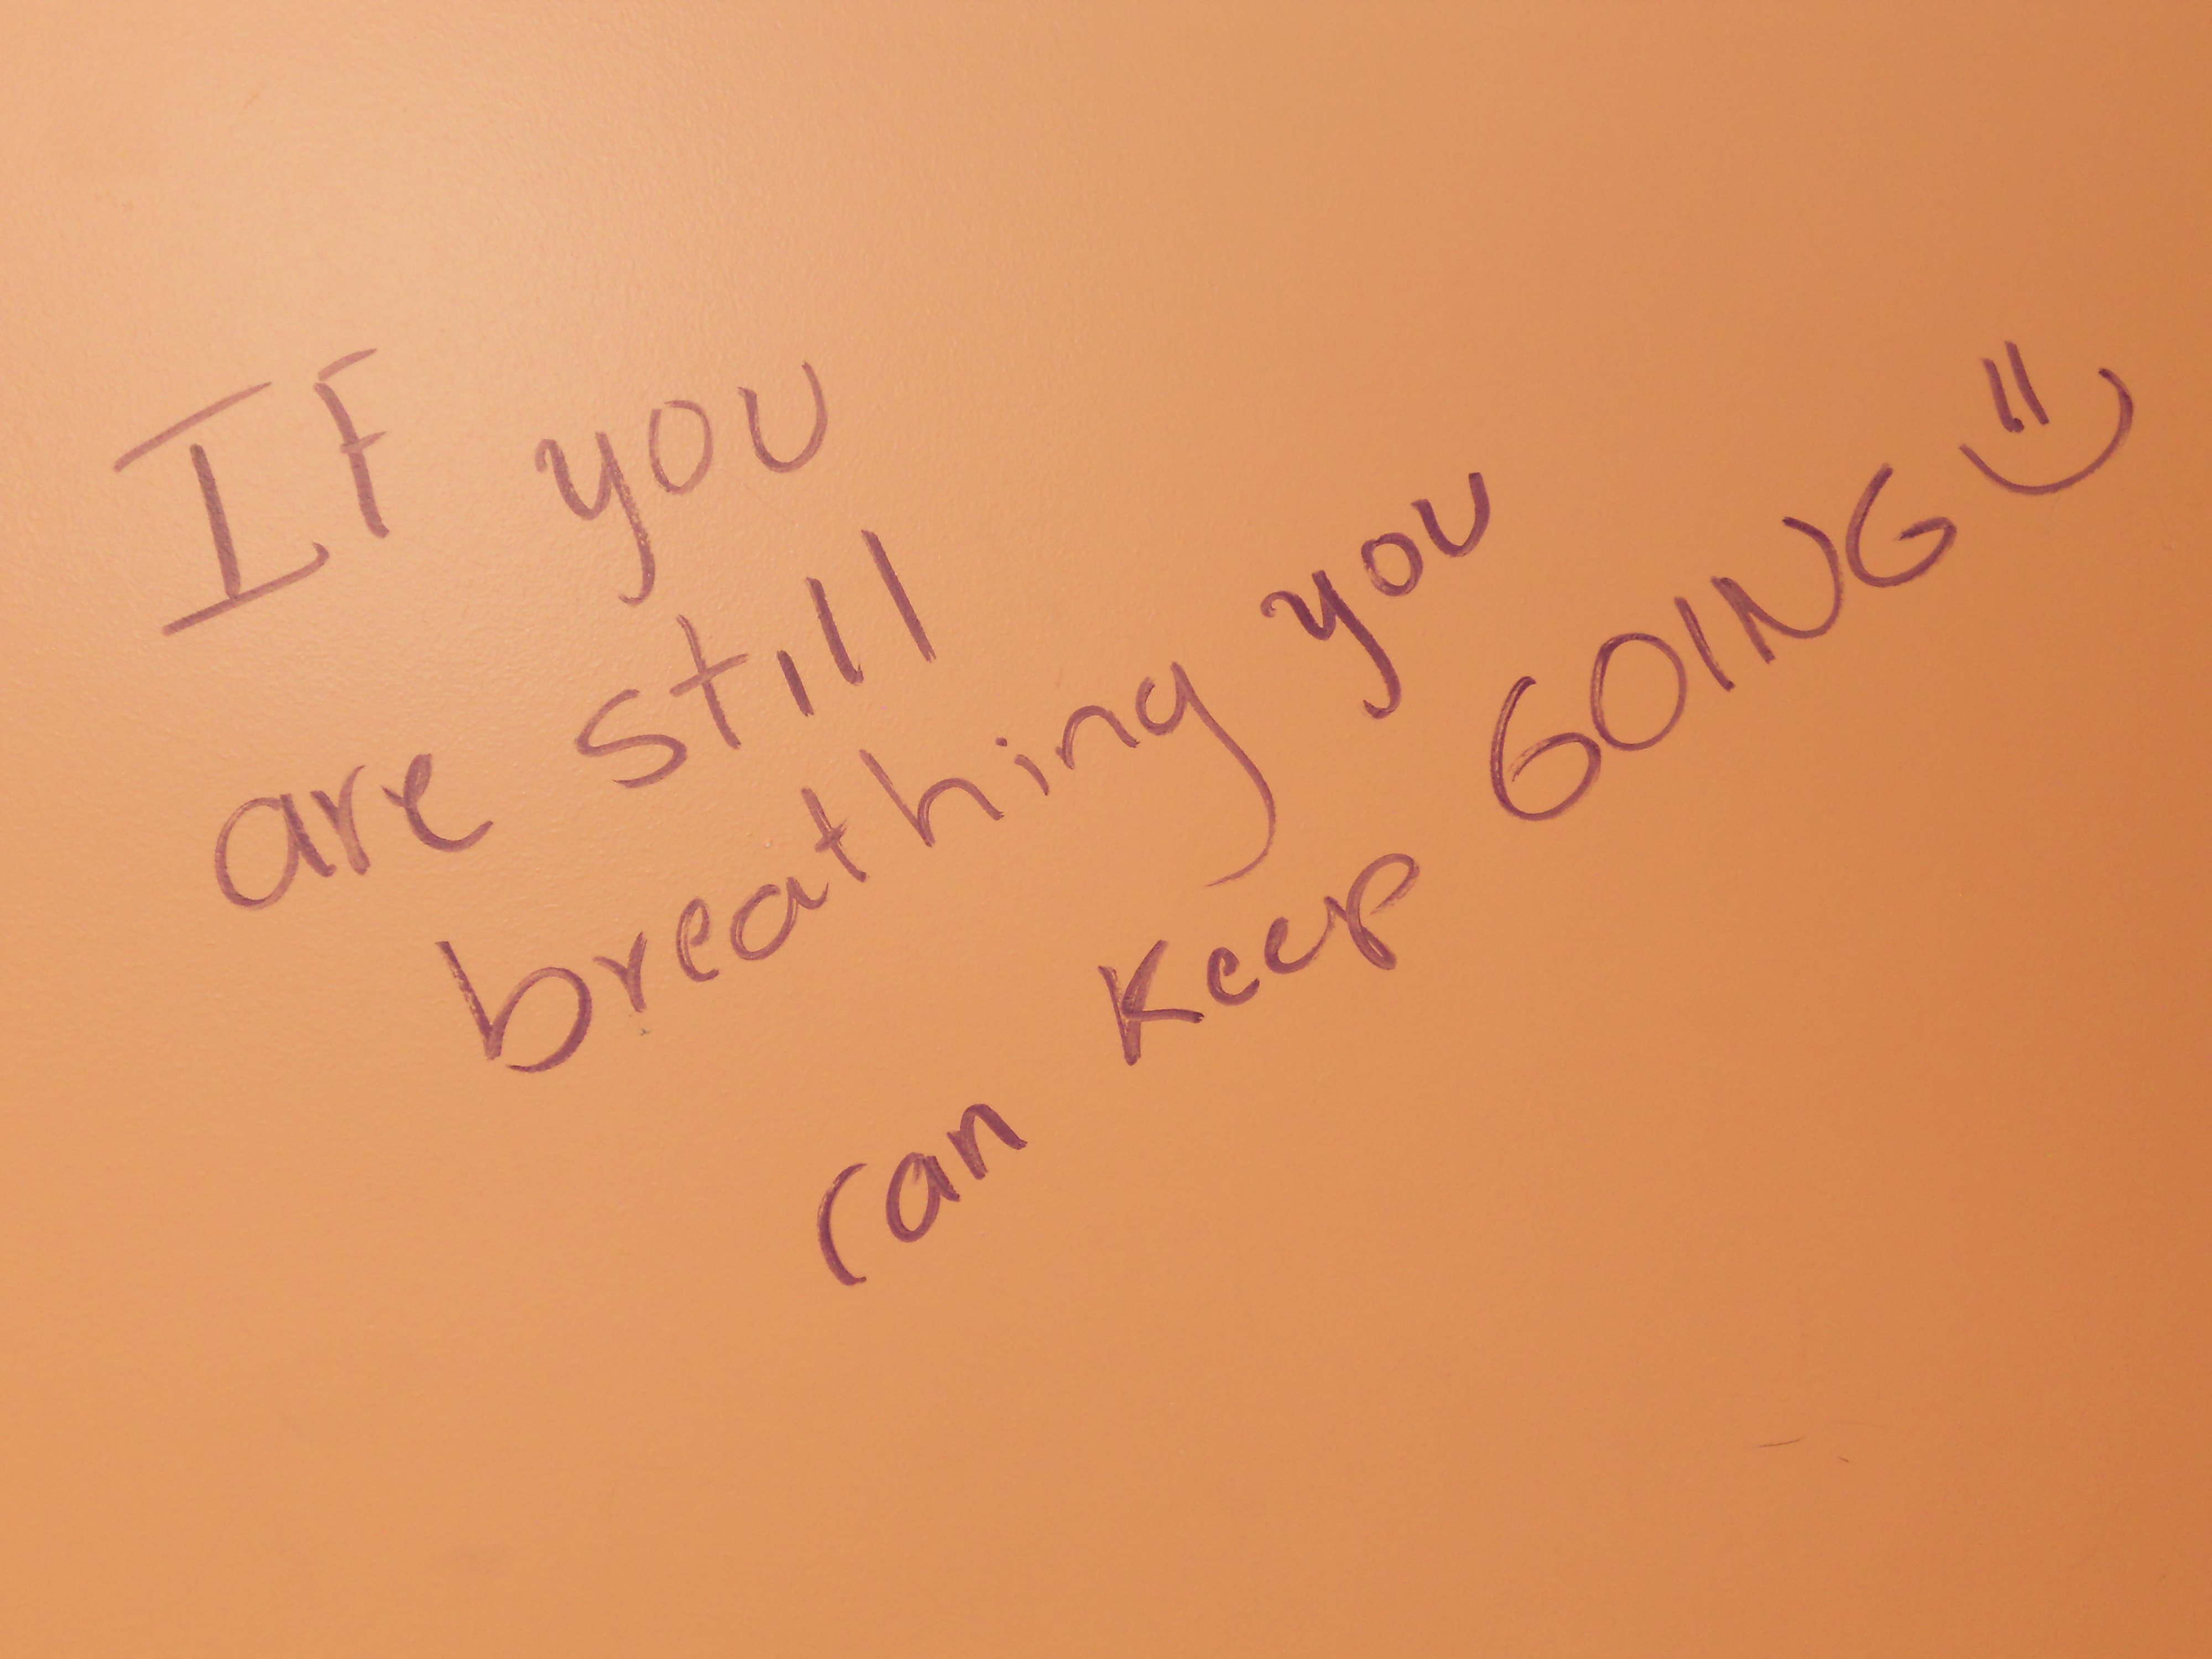 If you
are still
breathing you
can keep GOING =)